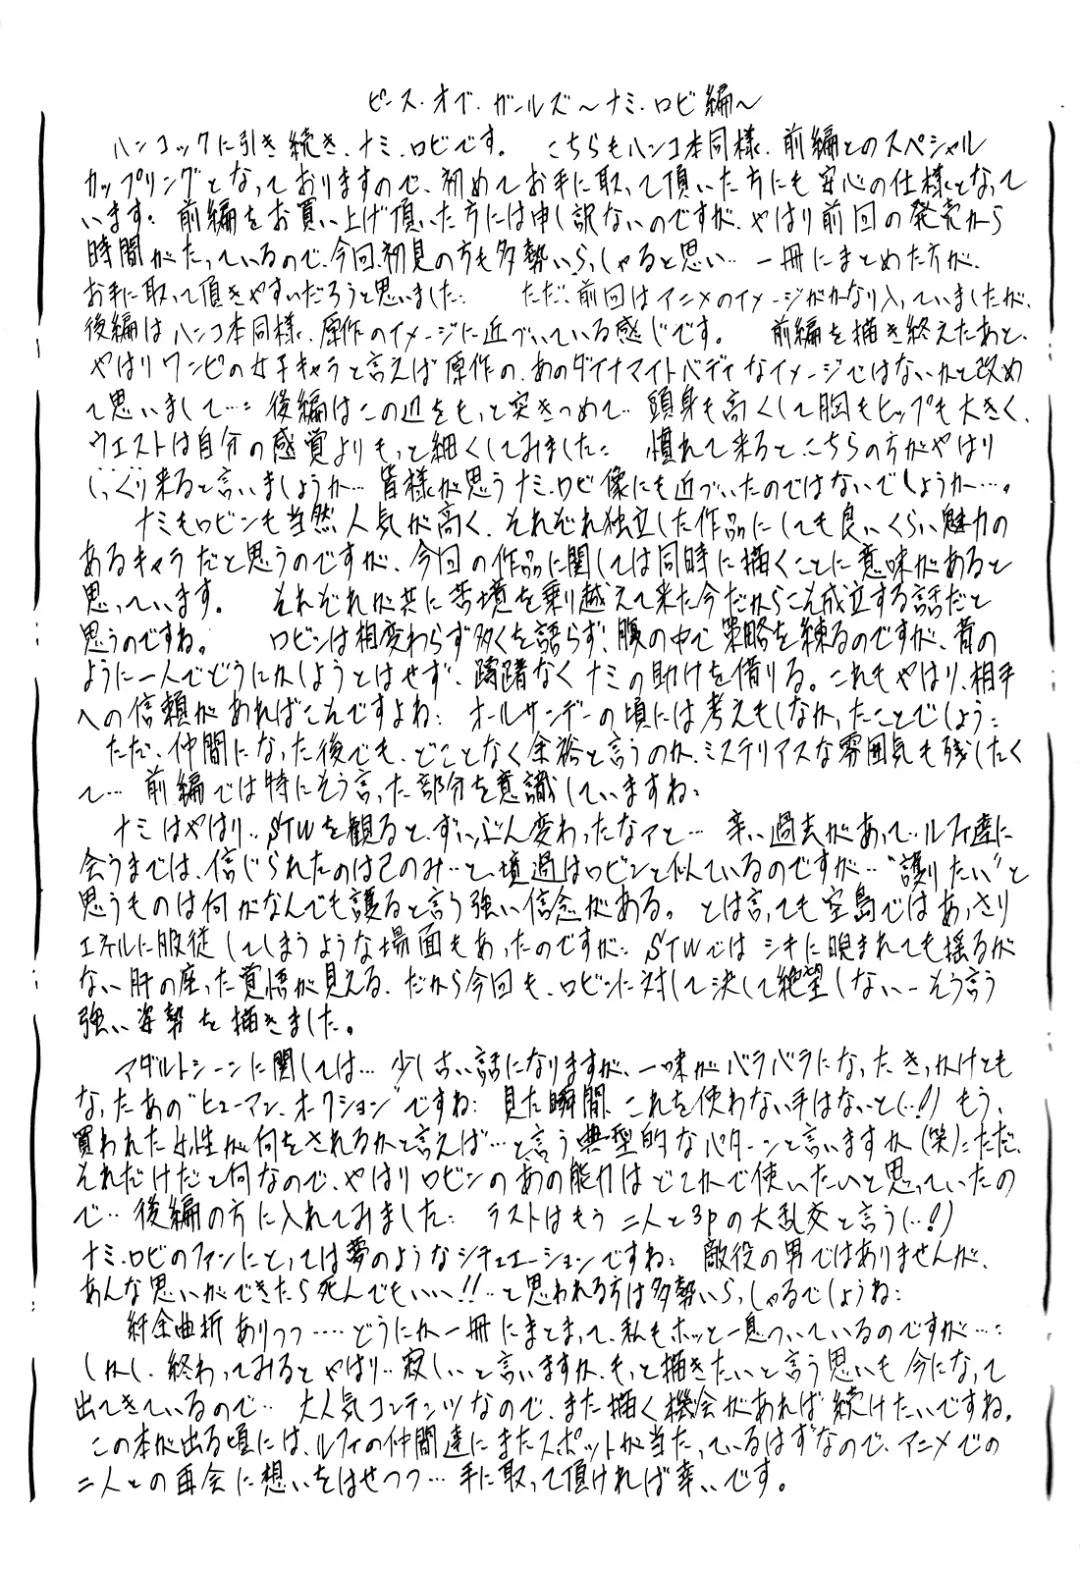 ピース・オブ・ガールズ～ナミ・ロビ編～
ハンコックに引き続き、ナミ・ロビです。 こちらもハンコ本同様、前編とのスペシャル
カップリングとなっておりますので、初めてお手に取って頂いた方にも安心の仕様となって
います。前編をお買い上げ頂いた方には申し訳ないのですが、やはり前回の発売から
時間がたっているので、今回初見の方も多勢いらっしゃると思い… 一冊にまとめた方が、
お手に取って頂きやすいだろうと思いました。 ただ、前回はアニメのイメージがかなり入っていましたが、
後編はハンコ本同様、原作のイメージに近づいている感じです。 前編を描き終えたあと、
やはりワンピの女子キャラと言えば原作の、あのダイナマイトバディなイメージではないかと改め
て思いまして…。後編はこの辺をもっと突きつめて… 頭身も高くして胸もヒップも大きく、
ウエストは自分の感覚よりもっと細くしてみました。 慣れて来ると、こちらの方がやはり
しっくり来ると言いましょうか… 皆様が思うナミ・ロビ像にも近づいたのではないでしょうか…。
ナミもロビンも当然人気が高く、それぞれ独立した作品にしても良いくらい魅力の
あるキャラだと思うのですが、今回の作品に関しては同時に描くことに意味があると
思っています。 それぞれが共に苦境を乗り越えて来た今だからこそ成立する話だと
思うのですね。 ロビンは相変わらず多くを語らず、腹の中で策略を練るのですが、昔の
ように一人でどうにかしようとはせず、躊躇なくナミの助けを借りる。これもやはり、相手
への信頼があればこそですよね。オールサンデーの頃には考えもしなかったことでしょう。
ただ、仲間になった後でも、どことなく余裕と言うのか、ミステリアスな雰囲気も残したく
て… 前編では特にそう言った部分を意識していますね。
ナミはやはり… STWを観ると、ずいぶん変わったなァと… 辛い過去があって… ルフィ達に
会うまでは、信じられたのは己のみ…と、境遇はロビンと似ているのですが… “護りたい”と
思うものは何がなんでも護ると言う強い信念がある。とは言っても空島ではあっさり
エネルに服従してしまうような場面もあったのですが。STWではシキに睨まれても揺るが
ない肝の座った覚悟が見える。だから今回も、ロビンに対して決して絶望しない…そう言う
強い姿勢を描きました。
アダルトシーンに関しては… 少し古い話になりますが、一味がバラバラになったきっかけとも
なったあの“ヒューマン・オークション”ですね。見た瞬間、これを使わない手はないと(…!) もう、
買われた女性が何をされるかと言えば…と言う典型的なパターンと言いますか(笑)。ただ、
それだけだと何なので、やはりロビンのあの能力はどこかで使いたいと思っていたの
で… 後編の方に入れてみました。 ラストはもう二人と3Pの大乱交と言う(…!)
ナミ・ロビのファンにとっては夢のようなシチュエーションですね。敵役の男ではありませんが、
あんな思いができたら死んでもいい!!…と思われる方は多勢いらっしゃるでしょうね。
紆余曲折ありつつ…どうにか一冊にまとまって、私もホッと一息ついているのですが…。
しかし、終わってみるとやはり… 寂しいと言いますか、もっと描きたいと言う思いも今になって
出てきているので… 大人気コンテンツなので、また描く機会があれば続けたいですね。
この本が出る頃には、ルフィの仲間達にまたスポットが当たっているはずなので、アニメでの
二人との再会に想いをはせつつ… 手に取って頂ければ幸いです。